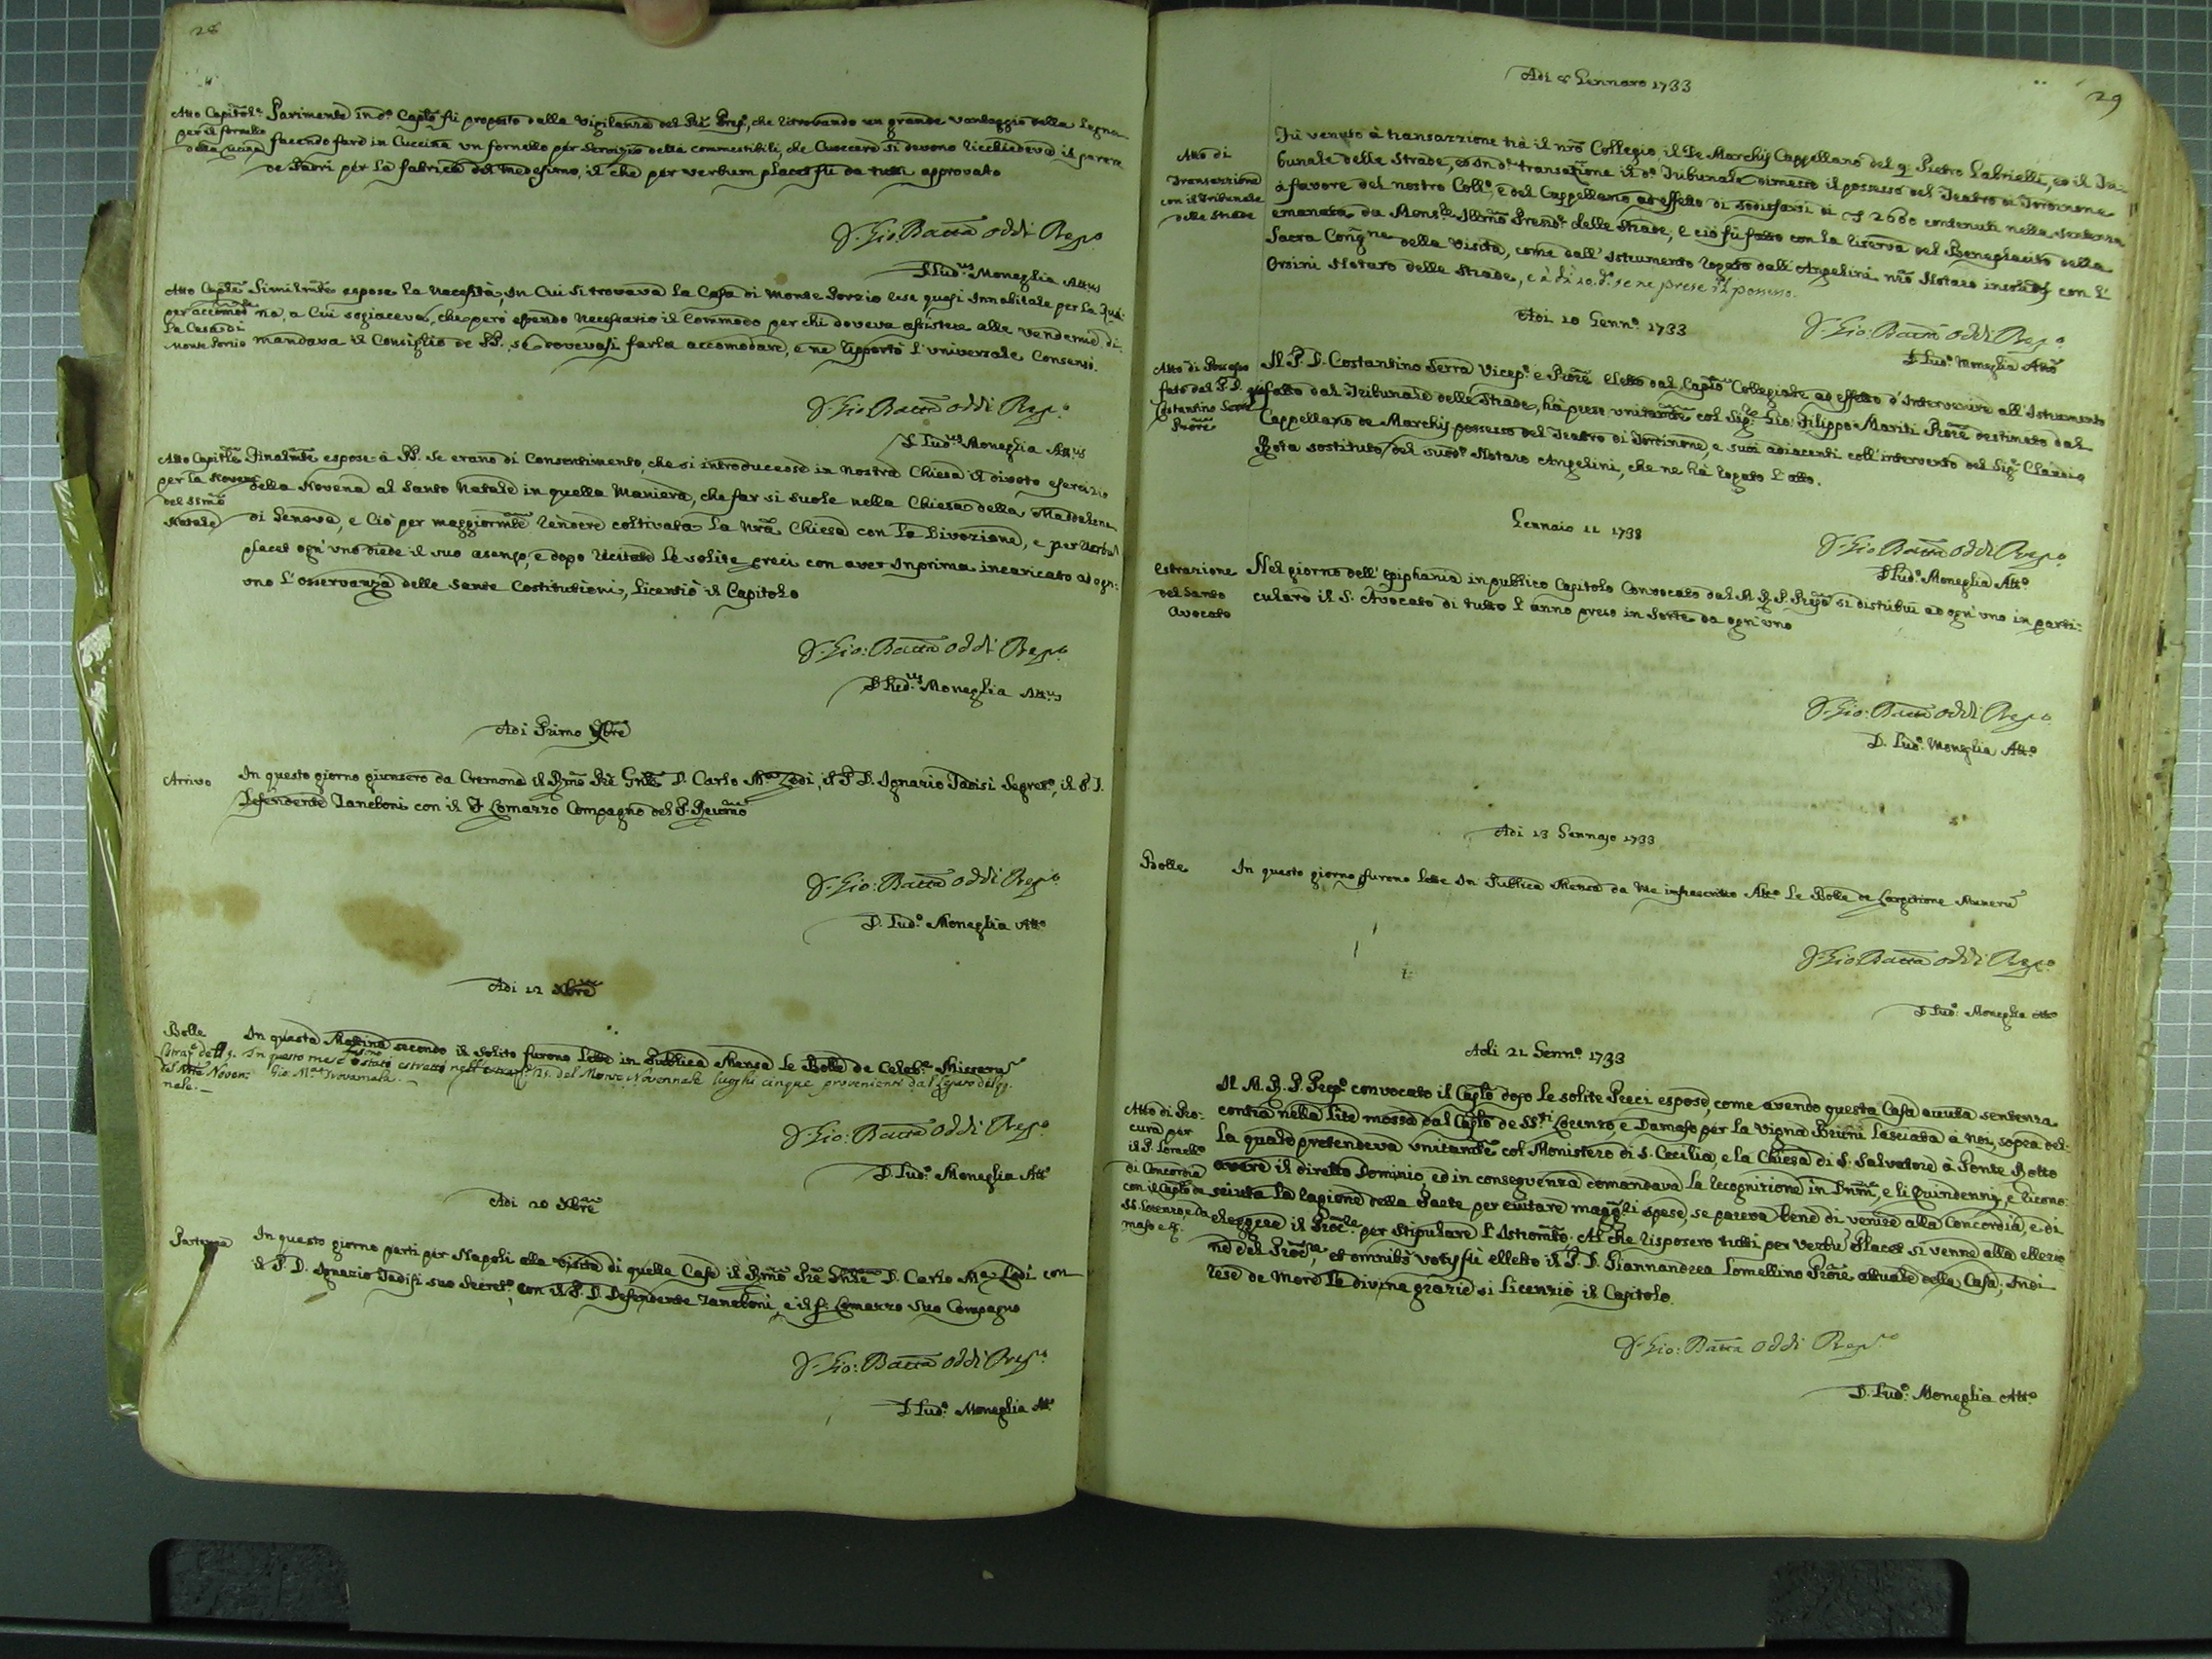 28
Atto Capitole Parimente in do. Caplo fù proposto dalla vigilanza del Prê Prepo, che ritrovando un grande vantaggio della Legna
per il fornello
della cucina facendo fare in Cuccina un fornello per servizio delle commestibili, che Cuoceare si devono ricchiedeva il parere
de Padri per la fabrica del medesimo, il che per verbum placet fù da tutti approvato
D. Gio: Batta Oddi Prepo
D Ludus Moneglia Attus
Atto Caplre Similmte espose la necessità, in Cui si trovava la Casa di Monte Porzio rese quasi Innabitale per la
per accomodare na, a Cui sogiaceva, che però essendo necessario il Commodo per chi doveva assistere alle vendemie di
la Casa di
Monte Porzio mandava il Consiglio de PP., se dovevasi farla accomodare, e ne riportò l'universale Consenso.
D. Gio: Batta Oddi Prepo
D Ludus Moneglia Attus
Atto Capitle Finalmte espose à PP. se erano di Consentimento, che si introducesse in nostra Chiesa il divoto esercizio
per la Novena della Novena al Santo Natale in quella Maniera, che far si suole nella Chiesa della Maddalena
del Ssmo
Natale di Genova, e Ciò per maggiormte rendere coltivata la nrâ Chiesa con la Divozione, e per Verbum
placet ogn' uno diede il suo asenso, e dopo recitate le solite preci con aver Inprima incaricato ad ogn:
uno l'osservanza delle sante Costitutioni, licentiò il Capitolo
D. Gio: Batta Oddi Prepo
D Ludus Moneglia Attus
Adi Primo Xbre
Arrivo In questo giorno giunsero da Cremona il Rmo Prê Gnle D. Carlo Ma Lodi, il P D. Ignazio Tadisi Segreto, il P. D.
Defendente Zaneboni con il F Comazzo Compagno del P. Revmo
D. Gio: Batta Oddi Prepo
D. Ludo Moneglia Atto
Adi 12 Xbre
Bolle In questa Matina secondo il solito furono lette in Publica Mensa le Bolle de Celebe Missaru
Estraze de ll. 5. In questo mese sono stati estratti nell'estraze 25. del Monte Novennale luoghi cinque provenienti dal Legato del q.
nale. Gio. Ma
D. Gio: Batta Oddi Prepo
D. Ludo Moneglia Atto
Adi 20 Xbre
Partenza In questo giorno parti per Napoli alla visita di quelle Case il Rmo Prê Gnle D. Carlo Ma Lodi con
il P. D. Ignazio Tadisi suo Secreto, con il P. D. Defendente Zaneboni, e il f: Comazzo suo Compagno
D. Gio: Batta Oddi Prepo
D Ludo Moneglia Atto
29
Adi 8 Gennaro 1733
Atto di
Transazzione
con il Tribunale
delle strade
Fù venuto à transazzione trà il nrô Collegio, il De Marchij Cappellano del q. Pietro Gabrielli, ed il Tri-
bunale delle Strade, ed In da transazione il do Tribunale dimesse il possesso del Teatro di Tordinone
à favore del nostro Collo, e del Cappellano ad effetto di sodisfarsi di 2660 contenuti nella sentenza
emanata da Monsre Illmo Preside delle Strade, e ciò fù fatto con la riserva del Beneplacito della
Sacra Congne della Visita, come dall' Istrumento rogato dall' Angelini nrô Notaro con l'
Orsini Notaro delle Strade, e à dì 10. do se ne prese il possesso.
D. Gio: Batta Oddi Prepo
D Ludo Moneglia Atto
Adi 10 Genno 1733
Atto di Possesso
fatto dal P. D.
Costantino Serra
Procre
Il P. D. Costantino Serra Vicepo e Procre eletto dal Caplo Collegiale ad effetto d'Intervenire all'Istrumento
fatto dal Tribunale delle Strade, hà preso unitamte col Sigre Gio: Filippo Mariti Procre destinato dal
Cappellano de Marchij possesso del Teatro di Tordinone, e suoi adiacenti coll' intervento del Sigr Claudio
Rota sostituto del sudo Notaro Angelini, che ne hà rogato l'atto.
D. Gio: Batta Oddi Prepo
D Ludo Moneglia Atto
Gennaio 11 1733
Estrazione
del Santo
Avocato
Nel giorno dell' Epiphania in publico Capitolo Convocato dal M. R. P. Prepo si distribuì ad ogn' uno in parti:
culare il S. Avocato di tutto l'anno preso in sorte da ogn' uno
D. Gio: Batta Oddi Prepo
D. Ludo Moneglia Atto
Adi 13 Gennajo 1733
Bolle In questo giorno furono lette In Publica Mensa da me infrascritto Atto le Bolle de Largitione Muneru
D. Gio: Batta Oddi Prepo
D Ludo Moneglia Atto
Adi 21 Genno 1733
Atto di Pro:
cura per
il P. Lomello
di Concordia
con il Caplo de
SS. Lorenzo, e Da
maso e
Il M. R. P. Prepo convocato il Caplo dopo le solite Preci espose, come avendo questa Casa avuta sentenza
contra nella lite mossa dal Caplo de SSti Lorenzo, e Damaso per la vigna Bruni lasciata à noi, sopra del-
la quale pretendeva unitamte col Monistero di S. Cecilia, e la Chiesa di S. Salvatore à Ponte Rotto
avere il diretto Dominio, ed in conseguenza domandava la recognizione in Dnm, e li Quindennij, e ricono:
sciuta la ragione della Parte per evitare maggri spese, se pareva bene di venire alla Concordia, e di
eleggere il Procre per stipulare l'Istromto. Al che risposero tutti per verbu Placet si venne alla elezio
ne del Procre, et omnibs votis fù elletto il P. D. Giannandrea Lomellino Procre attuale della Casa; Indi
rese de more le divine grazie si licenziò il Capitolo.
D. Gio: Batta Oddi Prepo
D. Ludo Moneglia Atto